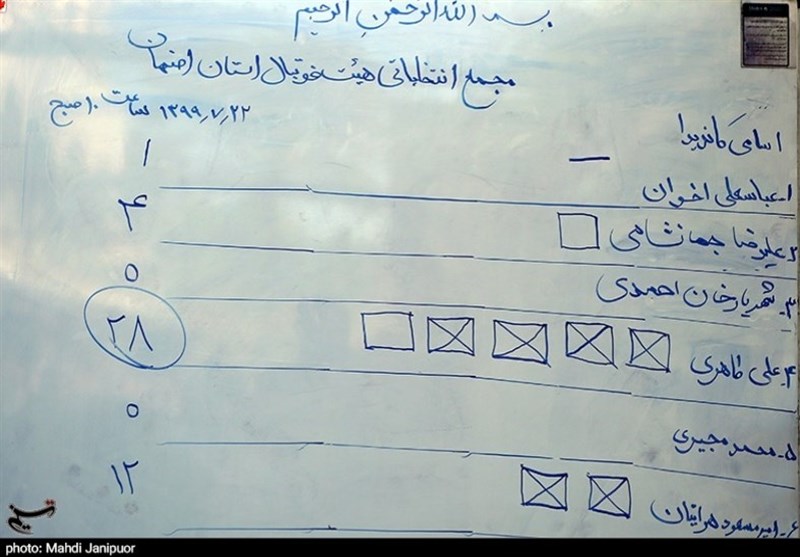 بسم الله الرحمن الرحیم
مجمع انتخاباتی هیئت فوتبال استان اصفهان
۱۳۹۹٫۷٫۲۲ ساعت ۱۰ صبح
اسامی کاندیدا
۱- عباسعلی اخوان ۱
۲- علیرضا جهانشاهی ۴
۳- شهریارخان احمدی ۵
۴- علی طاهری ۲۸
۵- محمد مجیری ۵
۶- امیرمسعود هراتیان ۱۲
تسنیم
photo: Mahdi Janipuor